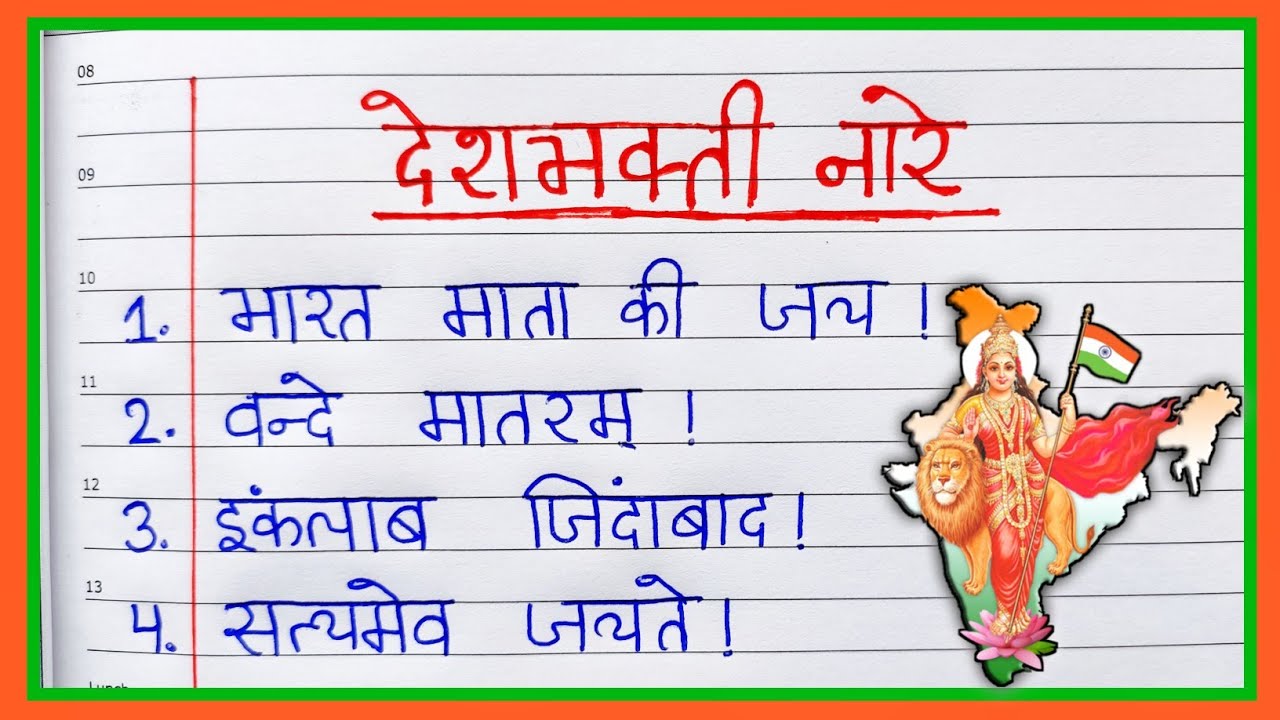 08
देशभक्ती नारे
09
10
1. भारत माता की जय !
11
2. वन्दे मातरम् !
12
3. इंकलाब जिंदाबाद !
13
4. सत्यमेव जयते !